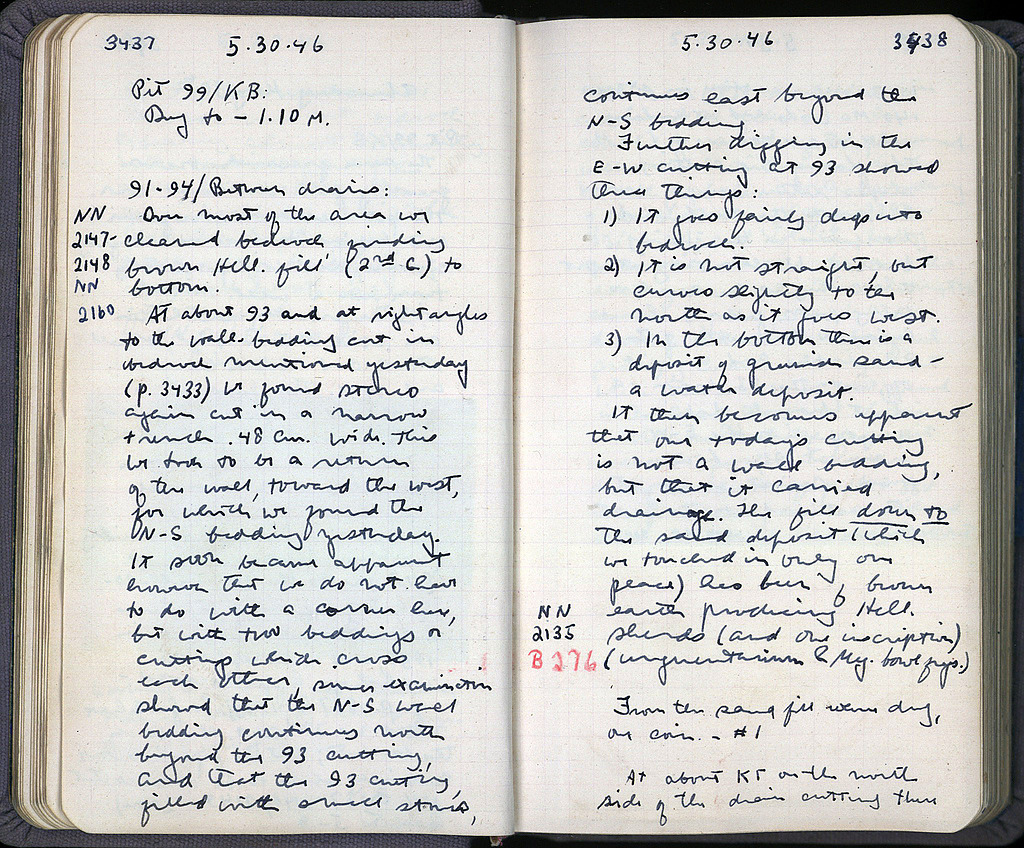 3437 5.30.46
Pit 99/KB:
Dug to - 1.10 M.
91-94/Between drains:
NN Over most of the area we
2147- cleared bedrock finding
2148 brown Hell. fill (2nd C.) to
NN bottom.
2160 At about 93 and at right angles
to the wall-bedding cut in
bedrock mentioned yesterday
(p. 3433) we found
again cut in a narrow
trench .48 cm. wide. This
we took to be a return
of the wall, toward the west,
for which we found the
N-S bedding yesterday.
It soon became apparent
however that we do not have
to do with a corner here,
but with two beddings or
cuttings which cross
each other, since examination
showed that the N-S wall
bedding continues north
beyond the 93 cutting,
and that the 93 cutting,
filled with small stones,
5.30.46 3438
continues east beyond the
N-S bedding.
Further digging in the
E-W cutting at 93 showed
three things:
1) It goes fairly deep into
bedrock.
2) It is not straight, but
curves slightly to the
north as it goes west.
3) In the bottom there is a
deposit of grainy sand -
a water deposit.
It then becomes apparent
that our today's cutting
is not a wall bedding,
but that it carried
drainage. The fill down to
the sand deposit (which
we touched in only one
place) has been of brown
NN earth producing Hell.
2135 sherds (and one inscription)
B 276 (unguentarium & Meg. bowl frgs.)
From the same fill were dug,
one coin. - #1
At about KT on the north
side of the drain cutting there